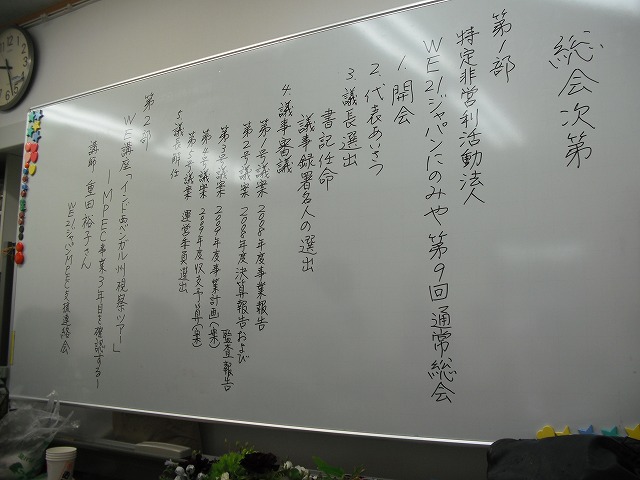 総会次第
第1部
特定非営利活動法人
WE21ジャパンにのみや 第9回通常総会
1. 開会
2. 代表あいさつ
3. 議長選出
書記任命
議事録署名人の選出
4. 議事審議
第1号議案 2008年度事業報告
第2号議案 2008年度決算報告および
監査報告
第3号議案 2009年度事業計画(案)
第4号議案 2009年度収支予算(案)
第5号議案 運営委員選出
5. 議長解任
第2部
WE講座「インド西ベンガル州視察ツアー」
ーIMPEC事業3年目を確認するー
講師 重田裕子さん
WE21ジャパンIMPEC支援連絡会